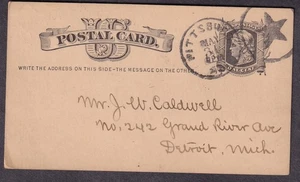 U S
POSTAL CARD.
WRITE THE ADDRESS ON THIS SIDE - THE MESSAGE ON THE OTHER
PITTSBU
Mr. J. W. Caldwell
No, 242 Grand River Ave
Detroit, Mich.